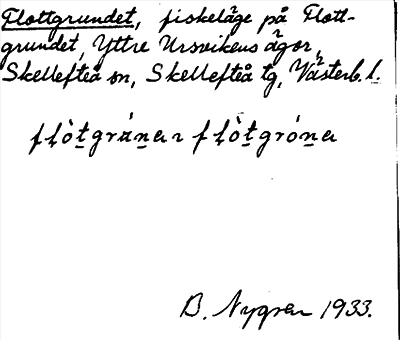 Flottgrundet, fiskeläge på Flott-
grundet, Yttre Ursvikens ägor,
Skellefteå sn, Skellefteå tg, Västerb. l.
B. Nygren 1933.